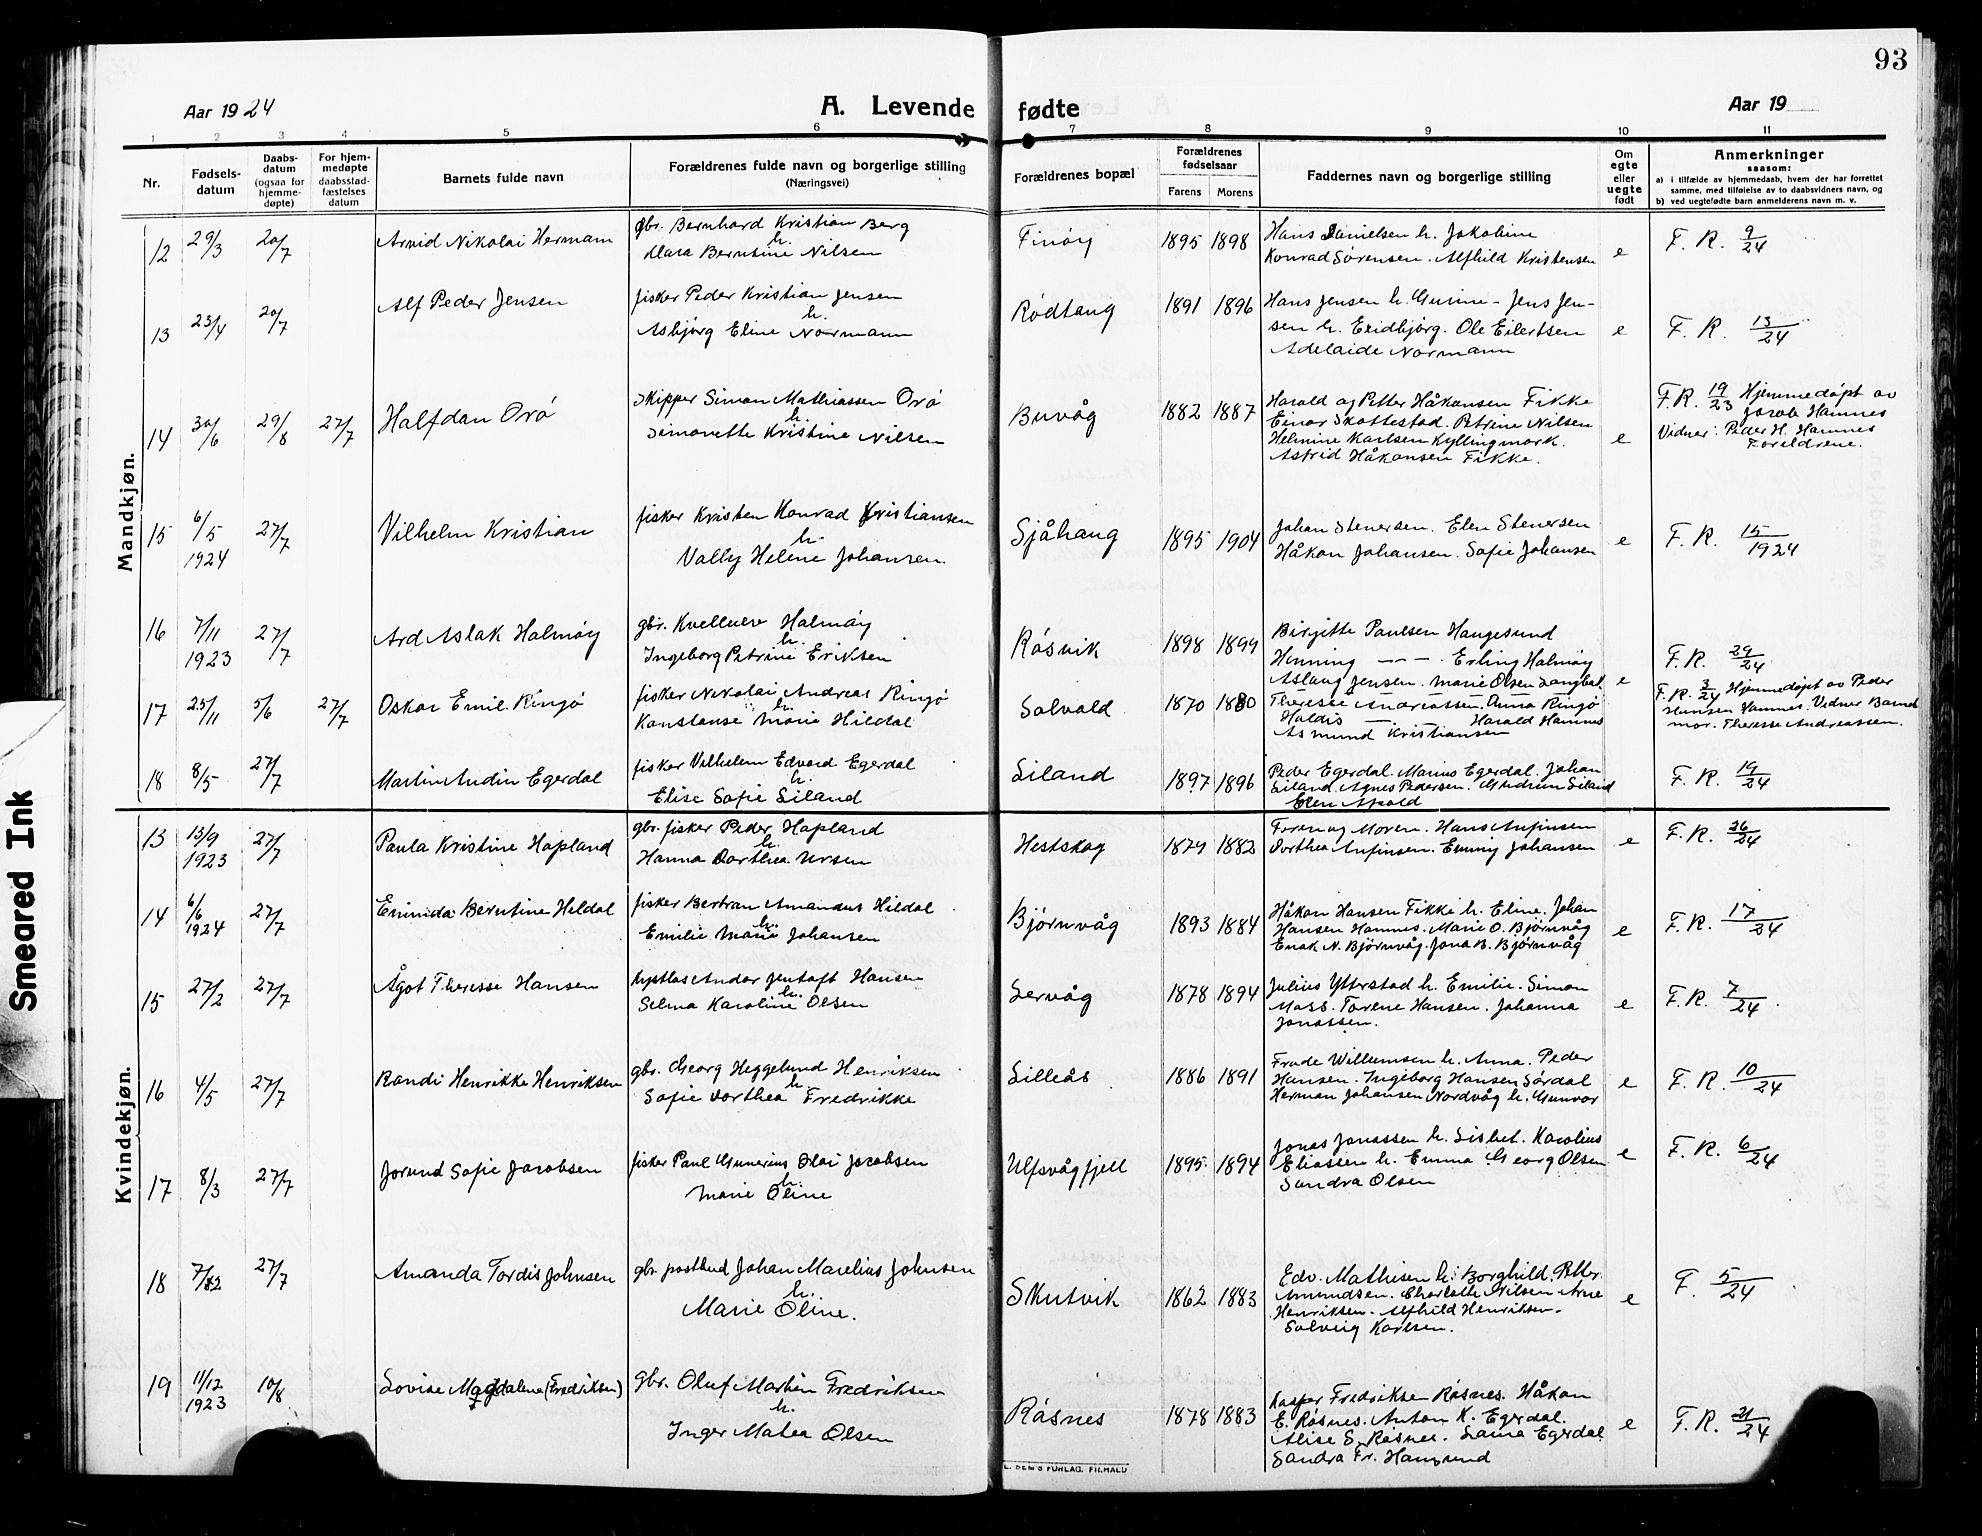 93
Aar 1924
A. Levende fødte
Aar 19
1 2 3 4 5 6 7 8 9 10 11
Nr.
Fødsels-
datum
Daabs-
datum
(ogsaa for
hjemme-
døpte)
For hjem-
medøpte
daabsstad-
fæstelses
datum
Barnets fulde navn
Forældrenes fulde navn og borgerlige stilling
(Næringsvei)
Forældrenes bopæl
Forældrenes
fødselsaar
Farens
Morens
Faddernes navn og borgerlige stilling
Om
egte
eller
uegte
født
Anmerkninger
saasom:
a) i tilfælde av hjemmedaab, hvem der har forrettet
samme, med tilføielse av to daabsvidners navn, og
b) ved uegtefødte barn anmelderens navn m. v.
Mandkjøn.
12 29/3 20/7 Arvid Nikolai Hermann
gbr. Bernhard Kristian Berg
h.
Klara Berntine Nilsen
Finøy 1895 1898
Hans Danielsen h. Jakobine
Konrad Sørensen. Alfhild Kristensen
e F. R. 9/24
13 23/4 20/7 Alf Peder Jensen
fisker Peder Kristian Jensen
h.
Asbjørg Eline Normann
Rødtang 1891 1896
Hans Jensen h. Gurine - Jens Jen-
sen h. Eridbjørg. Ole Eilertsen
Adelaide Normann
e F. R. 13/24
14 30/6 29/8 27/7 Halfdan Orø
skipper Simon Mathiassen Orø
h.
Simonette Kristine Nilsen
Buvåg 1882 1887
Harald og Petter Håkonsen Fikke
Einar Skottestad. Petrine Nilsen
Helmine Karlsen Kyllingmark.
Astrid Håkonsen Fikke.
e F. R. 19/23 Hjemmedøpt av
Jacob Hamnes
Vidner: Peder H. Hamnes
Foreldrene.
15 6/5 1924 27/7 Vilhelm Kristian
fisker Kristen Konrad Kristiansen
h.
Vally Helene Johansen.
Sjåhaug 1895 1904
Johan Stenersen. Elen Stenersen
Håkon Johansen. Sofie Johansen
e F. R. 15/1924
16 7/11 1923 27/7 Ard Aslak Halmøy
gbr. Kvelluev Halmøy
h.
Ingeborg Petrine Eriksen
Røsvik 1898 1899
Birgitte Paulsen Haugesund
Henning — — Erling Halmøy
Aslaug Jensen. Marie Olsen
e F. R. 29/24
17 25/11 5/6 27/7 Oskar Emil Ringø
fisker Nikolai Andreas Ringø
h.
Konstanse Marie Hildal
Solvold 1870 1880
Therese Andreassen. Anna Ringø
Haldis — Harald Hamnes
Asmund Kristiansen
F. R. 3/24 Hjemmedøpt av Peder
Hansen Hamnes. Vidner Barnets
mor. Therese Andreassen.
18 8/5 27/7 Martin Audin Egerdal
fisker Vilhelm Edvard Egerdal
h.
Elise Sofie Siland
Siland 1897 1896
Peder Egerdal. Marius Egerdal. Johan
Siland. Agnes Pedersen. Gudrun Siland
F. R. 19/24
Kvindekjøn.
13 13/9 1923 27/7 Paula Kristine Hopland
gbr. fisker Peder Hopland
h.
Hanna Dorthea Ursen
Hestskog 1874 1882
Faren og Moren. Hans Anfinsen
Dorthea Anfinsen. Emmy Johansen
e F. R. 26/24
14 6/6 1924 27/7 Erminda Berntine Hildal
fisker Bertran Amandus Hildal
h.
Emilie Marie Johansen
Bjørnvåg 1893 1884
Håkon Hansen Fikke h. Eline. Johan
Hansen Hamnes. Marie O. Bjørnvåg
Enok N. Bjørnvåg. Jona B. Bjørnvåg
e F. R. 17/24
15 27/2 27/7 Ågot Therese Hansen
Andor Jentoft Hansen
h.
Selma Karoline Olsen
Lervåg 1878 1894
Julius Ytterstad h. Emilie. Simon
Mass. Torene Hansen. Johanna
Jonassen.
e F. R. 7/24
16 4/5 27/7 Randi Henrikke Henriksen
gbr. Georg Heggelund Henriksen
h.
Sofie Dorthea Fredrikke
Lilleås 1886 1891
Frode Willumsen h. Anna. Peder
Hansen. Ingeborg Hansen Sørdal
Herman Johansen Nordvåg h. Gunvor
e F. R. 10/24
17 8/3 27/7 Jorund Sofie Jacobsen
fisker Paul Gunerius Olai Jacobsen
h.
Marie Oline
Ulfsvågfjell 1895 1894
Jonas Jonassen h. Lisbet. Karolius
Eliassen h. Emma. Georg Olsen
Sandra Olsen
e F. R. 6/24
18 7/12 27/7 Amanda Tordis Johnsen
gbr. postbud Johan Marelius Johnsen
h.
Marie Oline.
Skutvik 1862 1883
Edv. Mathisen h. Borghild. Petter
Amundsen. Charlotte Nilsen. Arne
Henriksen. Alfhild Henriksen.
Solveig Karlsen.
e F. 5/24
19 11/12 1923 10/8 Lovise Magdalene (Fredriksen)
gbr. Oluf Martin Fredriksen
h.
Inger Matea Olsen
Råsnes 1878 1883
Kasper Fredriksen Råsnes. Håkon
E. Råsnes. Anton K. Egerdal.
Alise S. Råsnes. Laura Egerdal
Sandra Fr. Hamsund
e F. R. 21/24
Smeared Ink